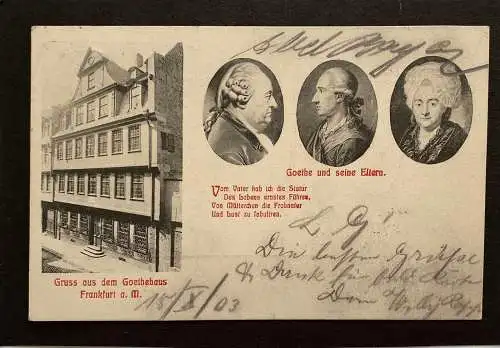 Goethe und seine Eltern.
Vom Vater hab ich die Statur
Des Lebens ernstes Führen,
Von Mütterchen die Frohnatur
Und Lust zu fabulieren.
Gruss aus dem Goethehaus
Frankfurt a. M.
L. G.
Die besten Grüsse
& Dank für
15/X/03